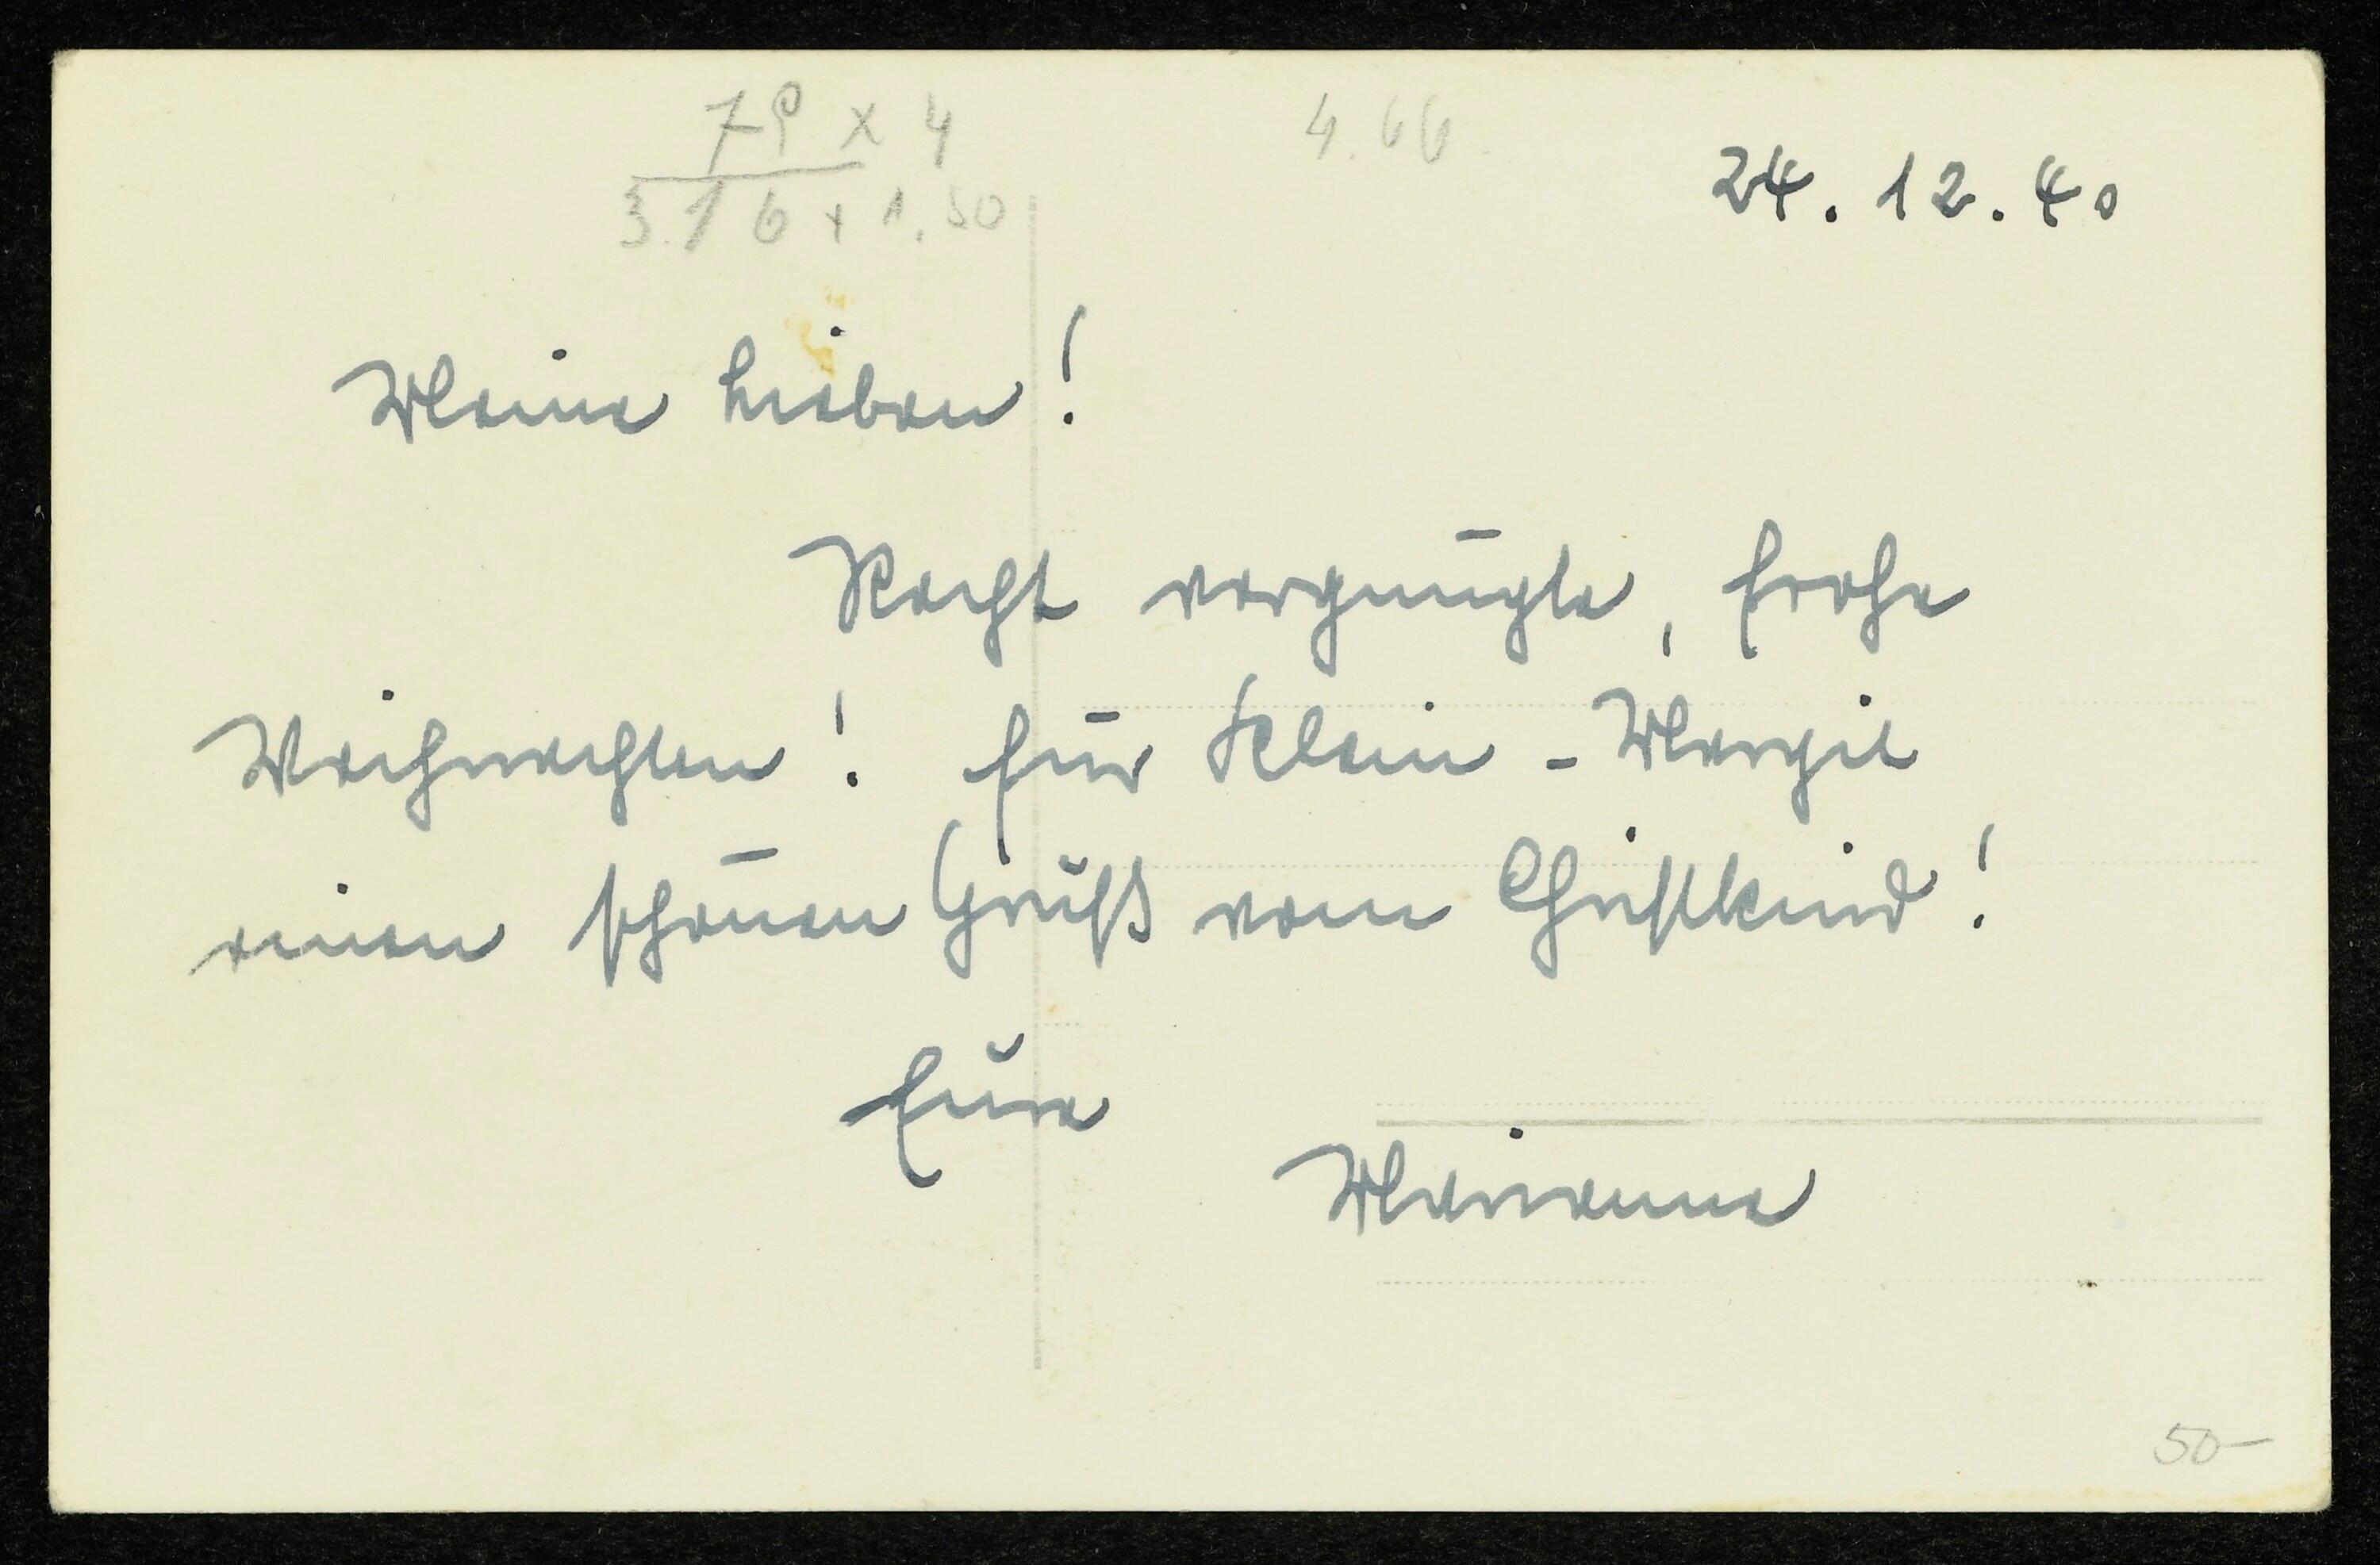 79 x 4
3.16 + 1.50
4.66.
24.12.40
Meine Lieben!
Recht vergnügte, frohe
Weihnachten! Für Klein-Margit
einen schönen Gruß vom Christkind!
Eure
Marianne
50-